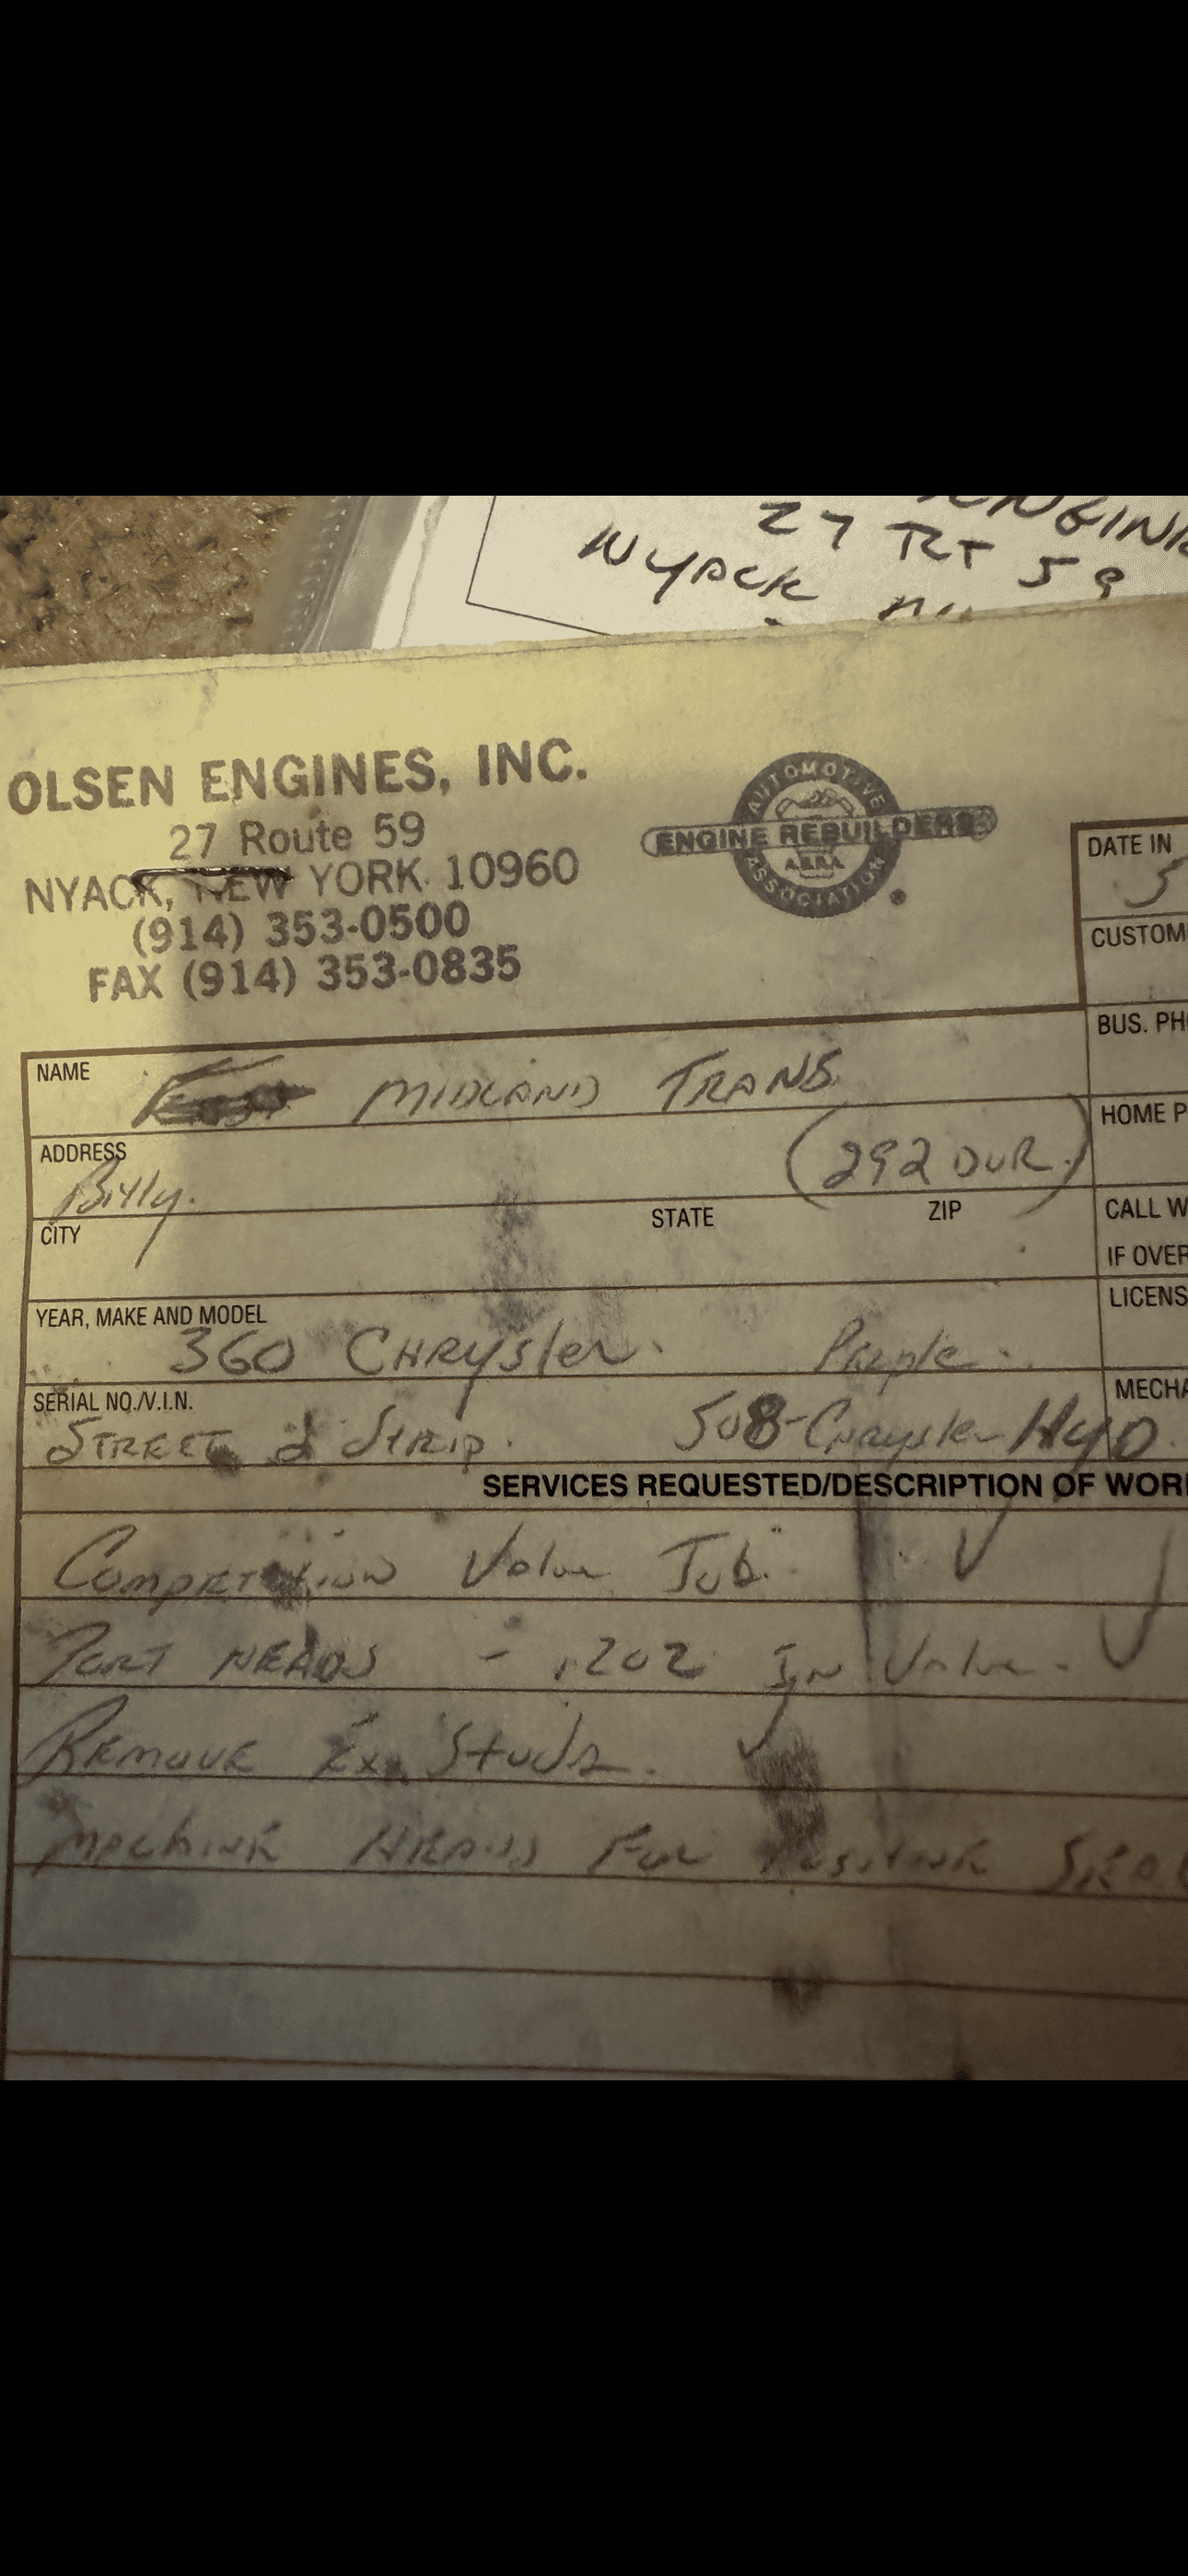 27 RT 59
NYACK
OLSEN ENGINES, INC.
27 Route 59
NYACK, NEW YORK 10960
(914) 353-0500
FAX (914) 353-0835
AUTOMOTIVE
ENGINE REBUILDERS
A.E.R.A.
ASSOCIATION
DATE IN
5
CUSTOM
BUS. PH
NAME MIDLAND TRANS
HOME P
ADDRESS Billy. (292 DUR.)
CITY STATE ZIP
CALL W
IF OVER
LICENS
YEAR, MAKE AND MODEL
360 CHRYSler. Purple.
SERIAL NO./V.I.N.
MECHA
STREET & Strip. 508-Chrysler Hyd.
SERVICES REQUESTED/DESCRIPTION OF WOR
Competition Valve Job.
PORT HEADS - .202 IN Valve.
REMOVE Ex. Studs.
Machine HEADS For